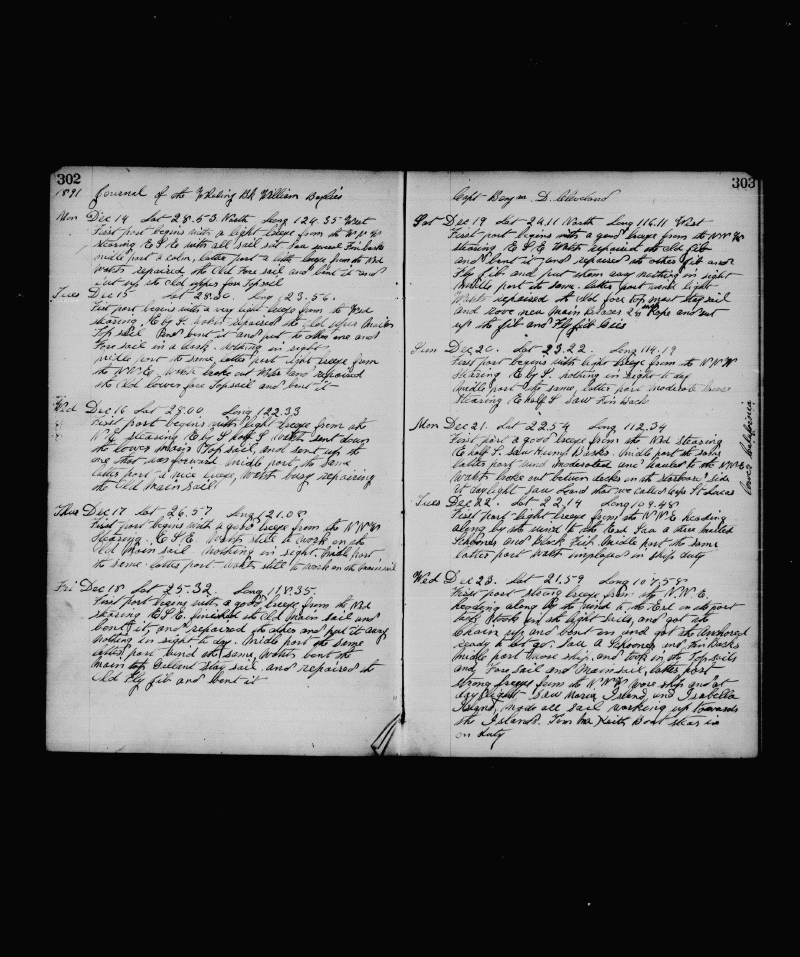 302
1891 Journal of the Whaling Bk William Baylies
Mon Dec 14 Lat 28.53 North Long 124.35 West
First part begins with a light breeze from the W N W
stearing E S E with all sail sit Saw several Finbacks
midle part a calm, latter part a light breeze from the Nrd
Watch repaired the Old Fore sail and bent it and
cut up the Old upper fore Top sail
Tues Dec 15 Lat 28.30 Long 123.56
First part begins with a very light breeze from the Nrd
stearing E by S. watch repaired the Old upper Main
Top sail and bent it and put the other one and
Fore sail in a Cask. nothing in sight
midle part the same latter part light breeze from
the N N E. Watch broke out Water and repaired
the Old lower fore Topsail and bent it
Wed Dec 16 Lat 28.00 Long 122.33
First part begins with light breeze from the
N E stearing E by S half S watch sent down
the lower main Top sail, and sent up the
one that was forward midle part, the same
latter part a nice breeze, Watch busy repairing
the Old Main sail
Thus Dec 17 Lat 26.57 Long 121.08
First part begins with a good breeze from the N N W
Stearing E S E. Watch still to work on the
Old Main sail nothing in sight. Midle part
the same. latter part watch still to work on the main sail
Fri Dec 18 Lat 25.32 Long 118.35
First part begins with a good breeze from the Nrd
stearing E S E. finished the Old Main sail and
bent it, and repaired the other and put it away
nothing in sight to day. Midle part the same
latter part wind the same, Watch bent the
main top Gallant stay sail and repaired the
Old Fly jib and bent it
303
Capt Benj m D. Cleveland
Sat Dec 19 Lat 24.11 North Long 116.11 West
First part begins with a good breeze from the N N W
stearing E S E Watch repaired the Old jib
and bent it, and repaired the other jib and
Fly jib and put them away nothing in sight
Midle part the same. latter part wind light
Watch repaired the Old fore top mast stay sail
and rove new Main Braces Rope and cut
up the jib and Fly jib
Sun Dec 20. Lat 23.22 Long 114.19
First part begins with light breeze from the N N W
Stearing E by S. nothing in sight to day
Midle part the same, latter part moderate breeze
Stearing E half S Saw Fin backs
Mon Dec 21. Lat 22.54 Long 112.34
First part a good breeze from the Nrd stearing
E half S. Saw Hump Backs. Midle part the same
latter part wind moderated and hauled to the N N E
Watch broke out between decks on the starbord side
at daylight saw Land that we called Cape St Lucas
lower California
Tues Dec 22. Lat 22.14 Long 109.48
First part light breeze from the N N E heading
along by the wind to the Est Saw a three masted
Schooner and Black Fish. Midle part the same
latter part watch imployed in ships duty
Wed Dec 23. Lat 21.59 Long 107.58
First part strong breeze from the N. N. E.
heading along by the wind to the Est on the port
tack took in the light sails, and got the
Chain up and bent on and got the Anchored
ready to let go. Saw a Schooner and Fin Backs
midle part wore ship, and took in the Top sails
and Fore sail and Main sail, latter part
strong breeze from the N N W wore ship and at
day light Saw Maria Island and Isabella
Island, made all sail working up towards
the Islands. Keith Boat stear is
on duty